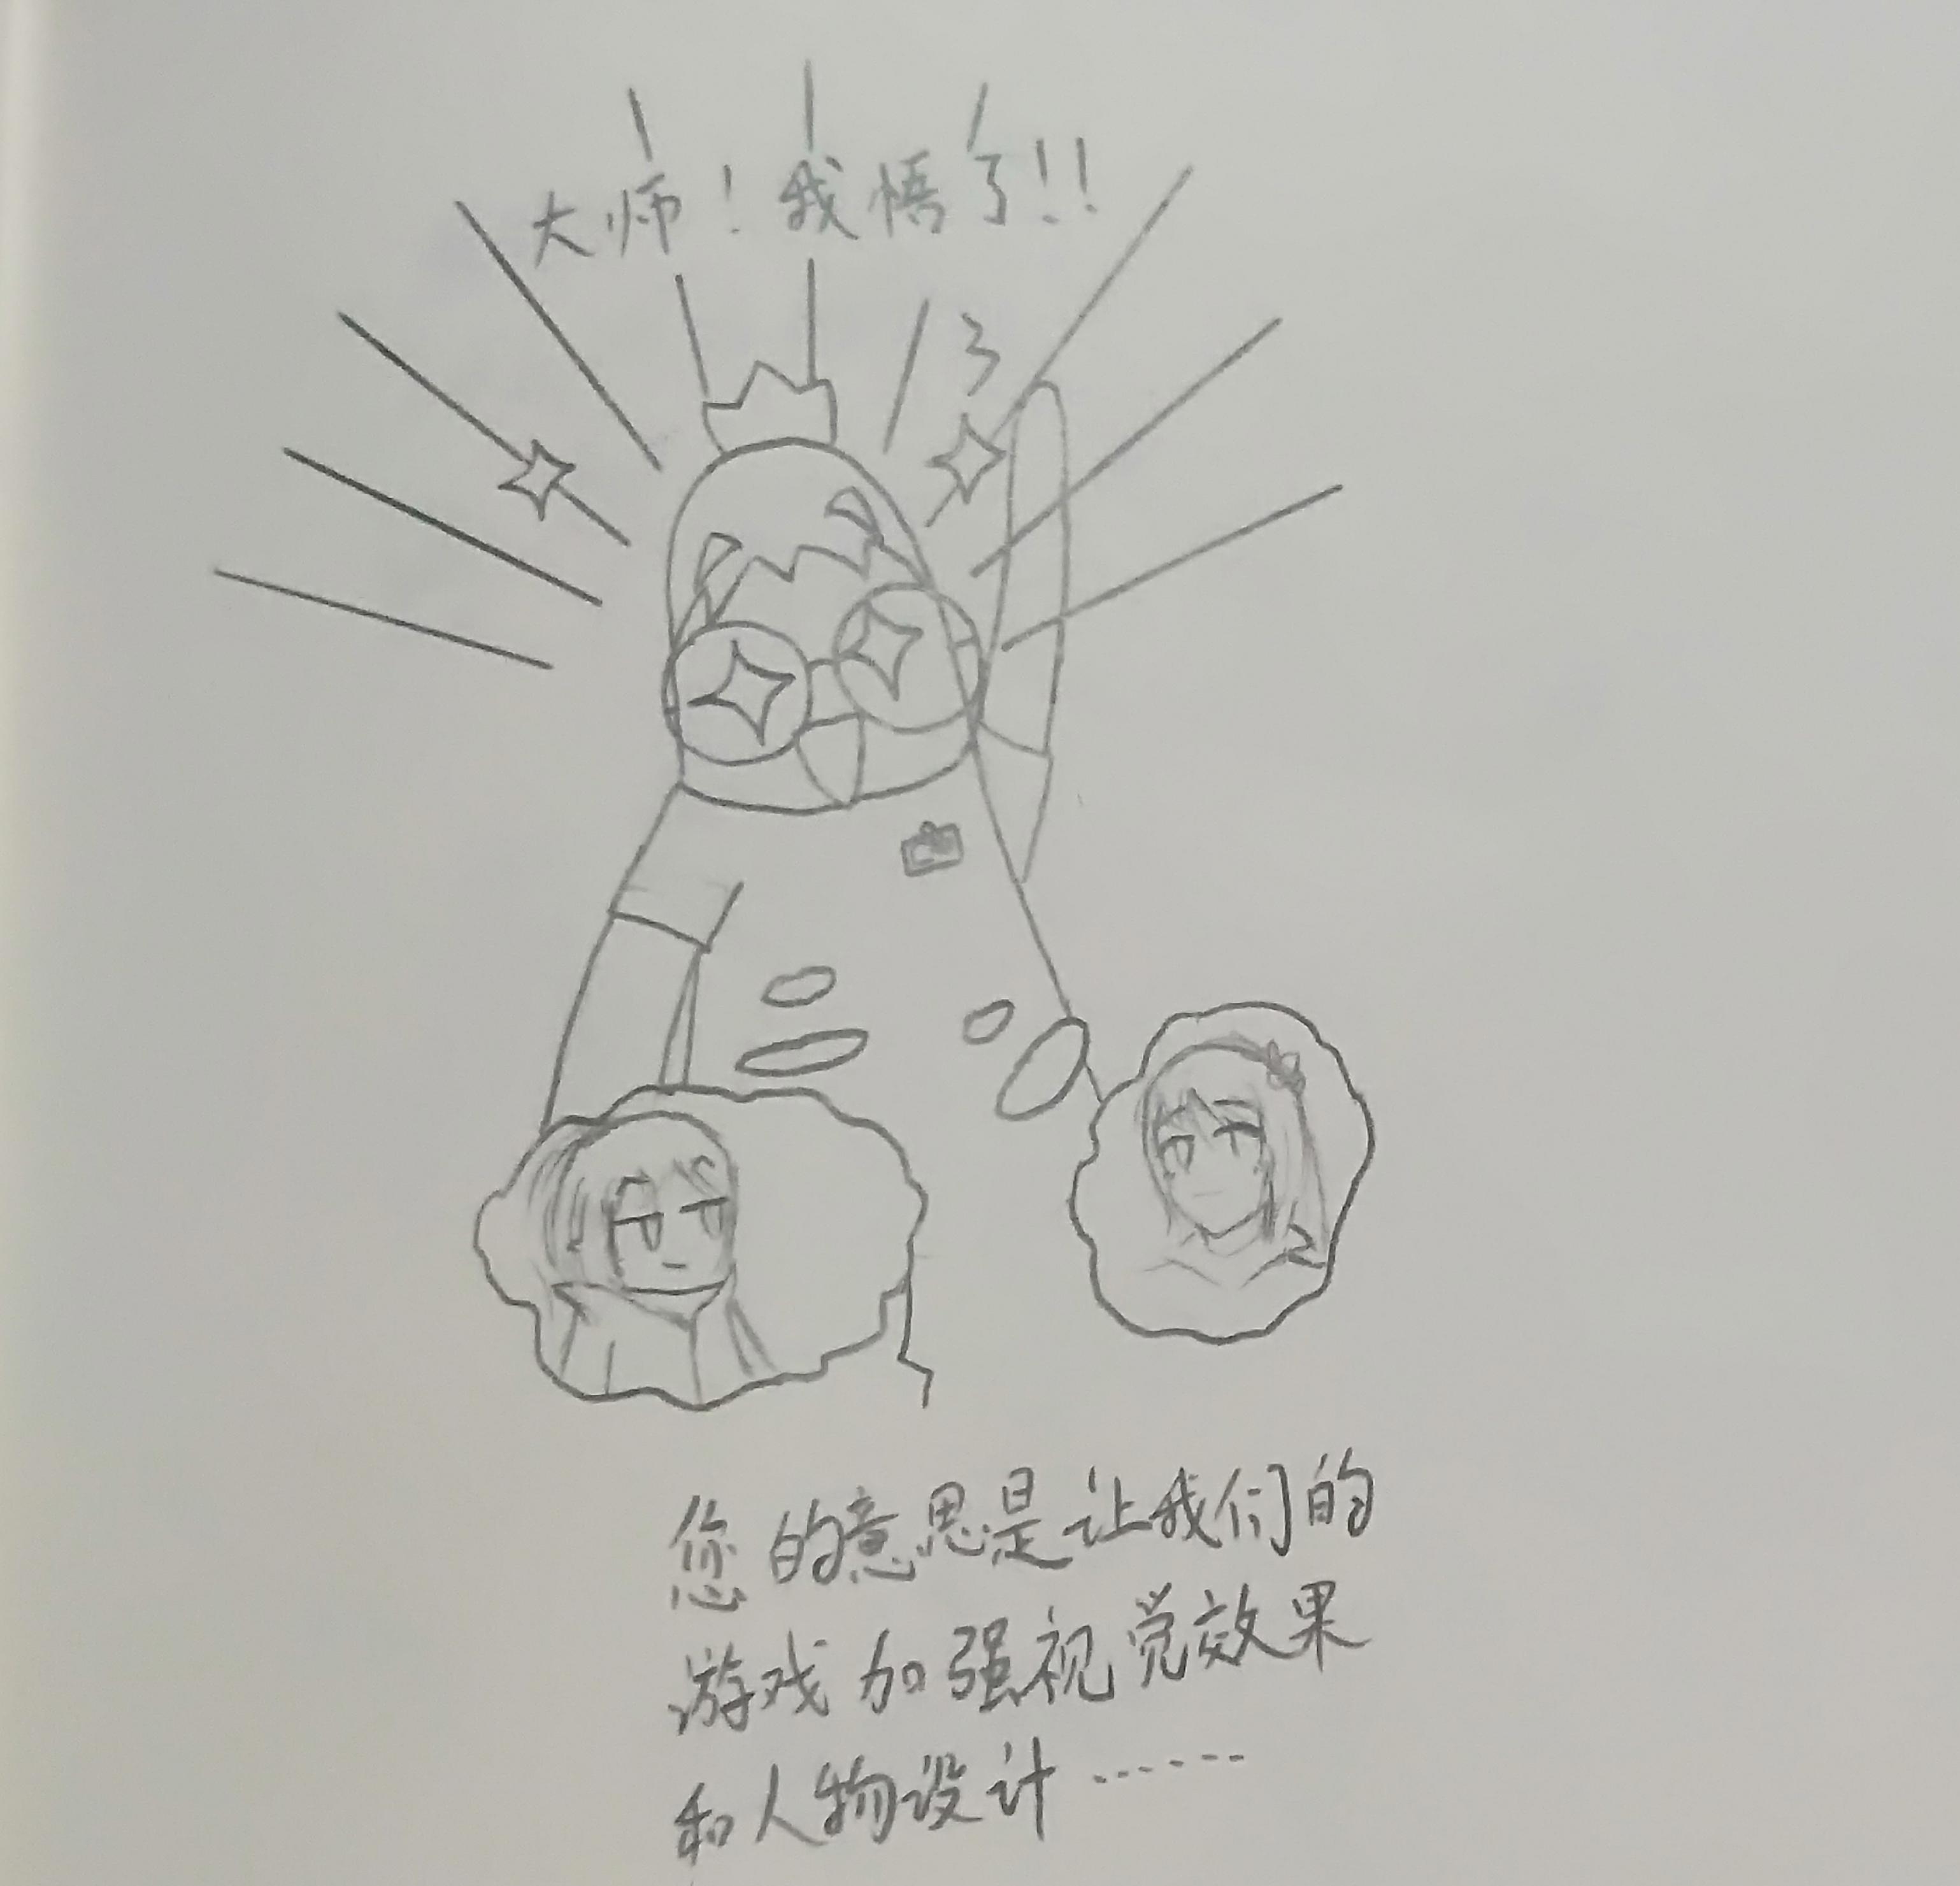 大师！我悟了!!
您的意思是让我们的
游戏加强视觉效果
和人物设计……